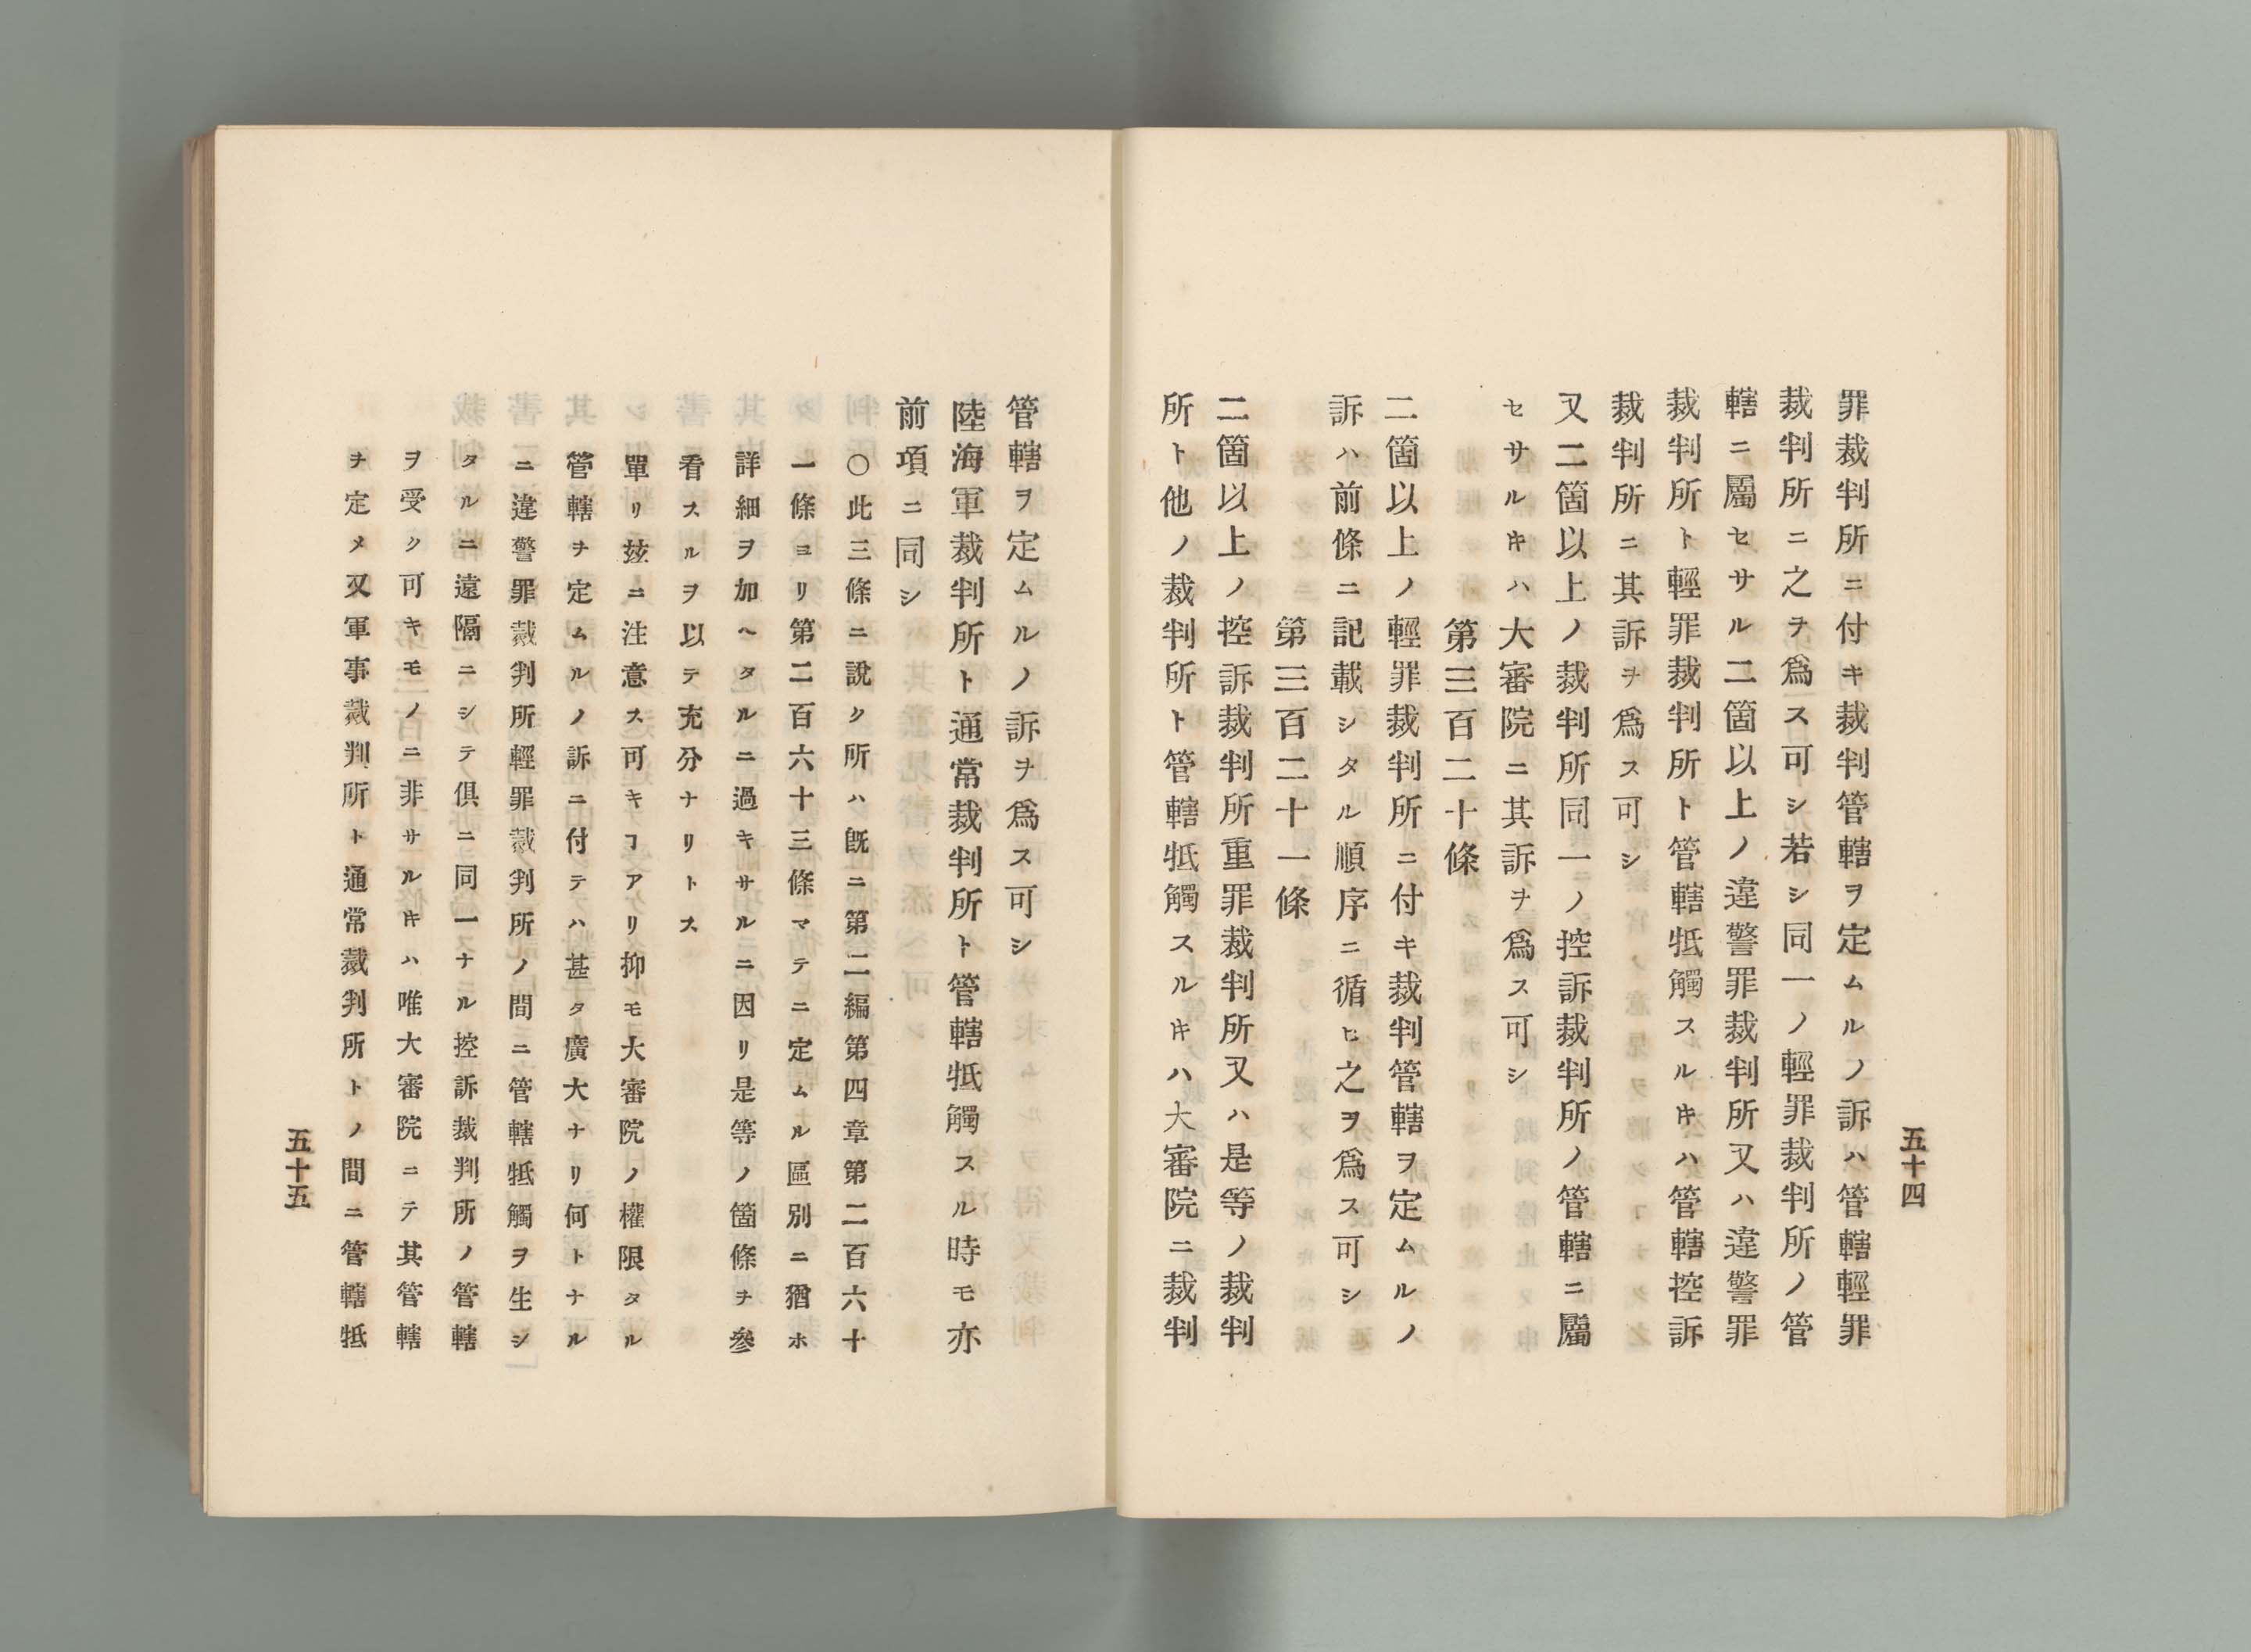 五十四
罪裁判所ニ付キ裁判管轄ヲ定ムルノ訴ハ管轄輕罪
裁判所ニ之ヲ爲ス可シ若シ同一ノ輕罪裁判所ノ管
轄ニ屬セサル二箇以上ノ違警罪裁判所又ハ違警罪
裁判所ト輕罪裁判所ト管轄牴觸スルキハ管轄控訴
裁判所ニ其訴ヲ爲ス可シ
又二箇以上ノ裁判所同一ノ控訴裁判所ノ管轄ニ屬
セサルキハ大審院ニ其訴ヲ爲ス可シ
第三百二十條
二箇以上ノ輕罪裁判所ニ付キ裁判管轄ヲ定ムルノ
訴ハ前條ニ記載シタル順序ニ循ヒ之ヲ爲ス可シ
第三百二十一條
二箇以上ノ控訴裁判所重罪裁判所又ハ是等ノ裁判
所ト他ノ裁判所ト管轄牴觸スルキハ大審院ニ裁判
管轄ヲ定ムルノ訴ヲ爲ス可シ
陸海軍裁判所ト通常裁判所ト管轄牴觸スル時モ亦
前項ニ同シ
〇此三條ニ說ク所ハ既ニ第二編第四章第二百六十
一條ヨリ第二百六十三條マテニ定ムル區別ニ猶ホ
詳細ヲ加ヘタルニ過キサルニ因リ是等ノ箇條ヲ參
看スルヲ以テ充分ナリトス
單リ玆ニ注意ス可キヿアリ抑モ大審院ノ權限タル
管轄ヲ定ムルノ訴ニ付テハ甚タ廣大ナリ何トナル
ニ違警罪裁判所輕罪裁判所ノ間ニ管轄牴觸ヲ生シ
タルニ遠隔ニシテ俱ニ同一ナル控訴裁判所ノ管轄
ヲ受ク可キモノニ非サルキハ唯大審院ニテ其管轄
ヲ定メ又軍事裁判所ト通常裁判所トノ間ニ管轄牴
五十五